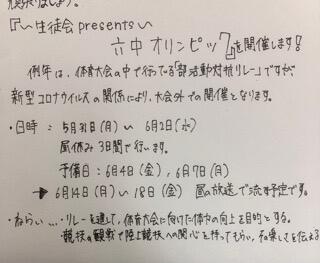 頑張りましょう。
『〜生徒会presents〜
六中オリンピック』を開催します!
例年は、体育大会の中で行っている「部活動対抗リレー」ですが、
新型コロナウイルスの関係により、大会外での開催となります。
・日時:5月31日(月)〜6月2日(水)
昼休み3日間で行います。
予備日:6月4日(金),6月7日(月)
→6月14日(月)〜18日(金) 昼の放送で流す予定です。
・ねらい…・リレーを通して、体育大会に向けた体力の向上を目的とする。
・競技の観戦で陸上競技への関心を持ってもらい、その楽しさを伝える